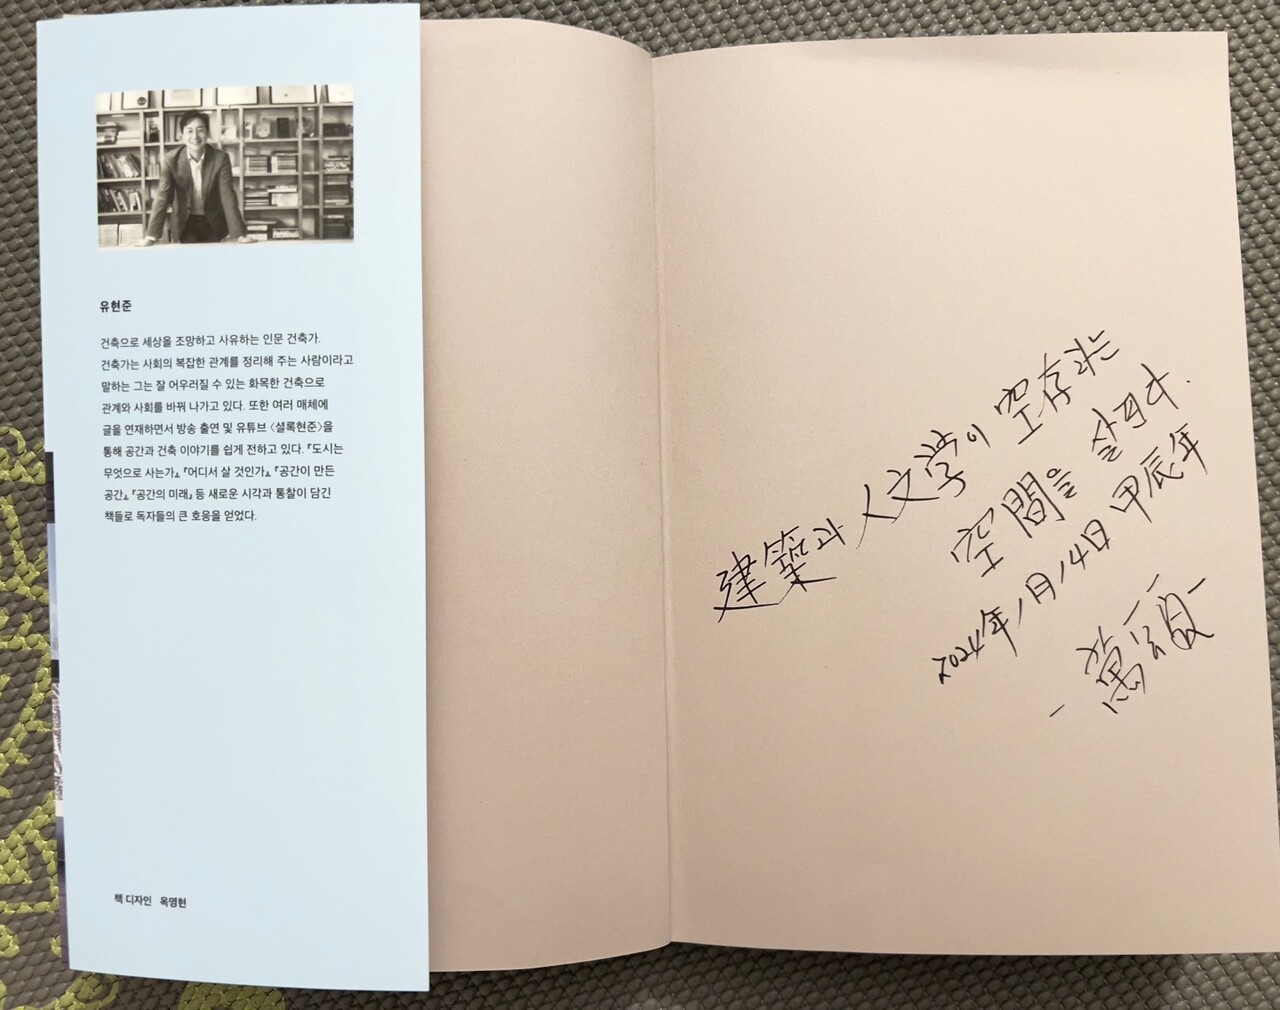 유현준
건축으로 세상을 조망하고 사유하는 인문 건축가.
건축가는 사회의 복잡한 관계를 정리해 주는 사람이라고
말하는 그는 잘 어우러질 수 있는 화목한 건축으로
관계와 사회를 바꿔 나가고 있다. 또한 여러 매체에
글을 연재하면서 방송 출연 및 유튜브 〈셜록현준〉을
통해 공간과 건축 이야기를 쉽게 전하고 있다. 『도시는
무엇으로 사는가』, 『어디서 살 것인가』, 『공간이 만든
공간』, 『공간의 미래』 등 새로운 시각과 통찰이 담긴
책들로 독자들의 큰 호응을 얻었다.
책 디자인 옥영현
建築과 人文學이 空存하는
空間을 살피다.
2024年 1月 14日 甲辰年